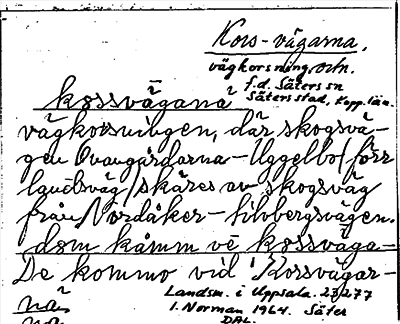 Kors-vägarna,
vägkorsning och n.
f.d. Säters sn
Säters stad, Kopp. län.
kossvägana
vägkorsningen, där skogsvä-
gen Ovangårdarna - Uggelbo (förr
landsväg) skäres av skogsväg
från Nordåker - Silvbergsvägen.
dom kåmm ve kossväga-
De kommo vid 'Korsvägar-
Landsm. i Uppsala. 23277
I. Norman 1964. Säter
DAL.